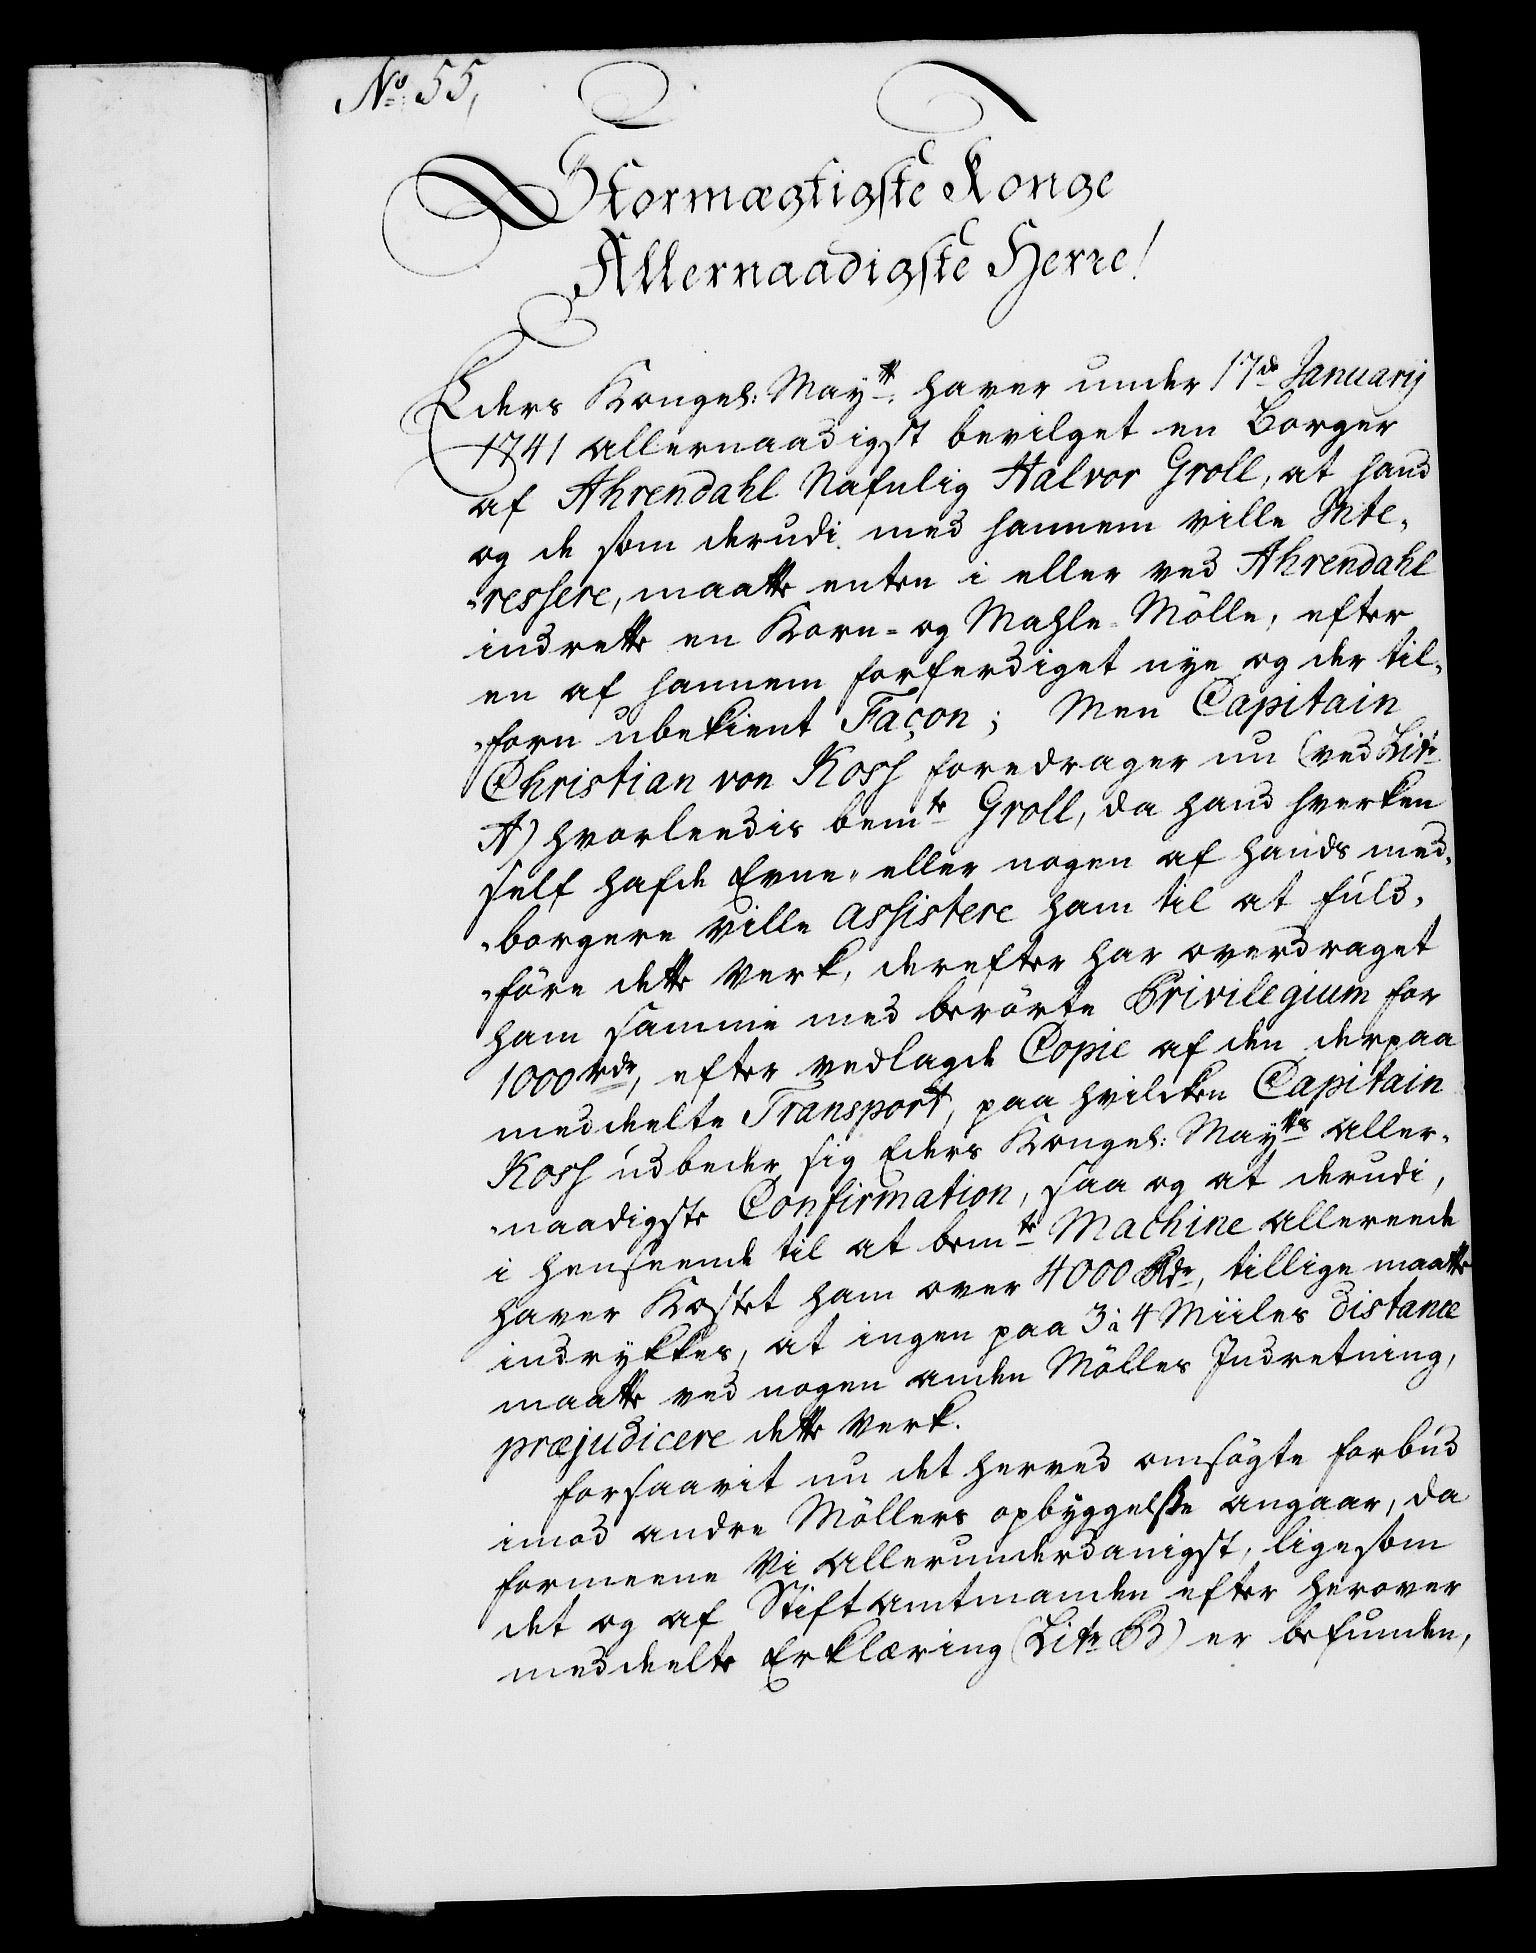 No: 55,
Stormægtigste Konge
Allernaadigste Herre!
Eders Kongel: Maytt: haver under 17de Januarij
1741 allernaadigst bevilget en Borger
af Ahrendahl Nafnlig Halvor Groll, at hand
og de som derudi med hannem ville Inte„
„ressere, maatte enten i eller ved Ahrendahl
indrette en Korn- og Mahle-Mölle, efter
en af hannem forferdiget nye og der til„
„forn ubekient Façon; Men Capitain
Christian von Kosh foredrager nu (ved Litr
A) hvorleedis bemte Groll, da hand hverken
self hafde Evne, eller nogen af hands med„
„borgere ville assistere ham til at fuld„
„före dette Verk, derefter har overdraget
ham samme med berörte Privilegium for
1000 rdr, efter vedlagde Copie af den derpaa
meddeelte Transport, paa hvilcken Capitain
Kosh udbeder sig Eders Kongel: Mayts aller„
„naadigste Confirmation, saa og at derudi,
i henseende til at bemte Machine allereede
haver Kostet ham over 4000 Rdr, tillige maatte
indrykkes, at ingen paa 3 à 4 Miiles distance
maatte ved nogen anden Mölles Indretning,
præjudicere dette Verk.
Forsaavit nu det herved omsögte forbud
imod andre Möllers opbyggelße angaar, da
formeene Vi allerunderdanigst, ligesom
det og af Stiftamtmanden efter herover
meddeelte Erklæring (Litr B) er befunden,